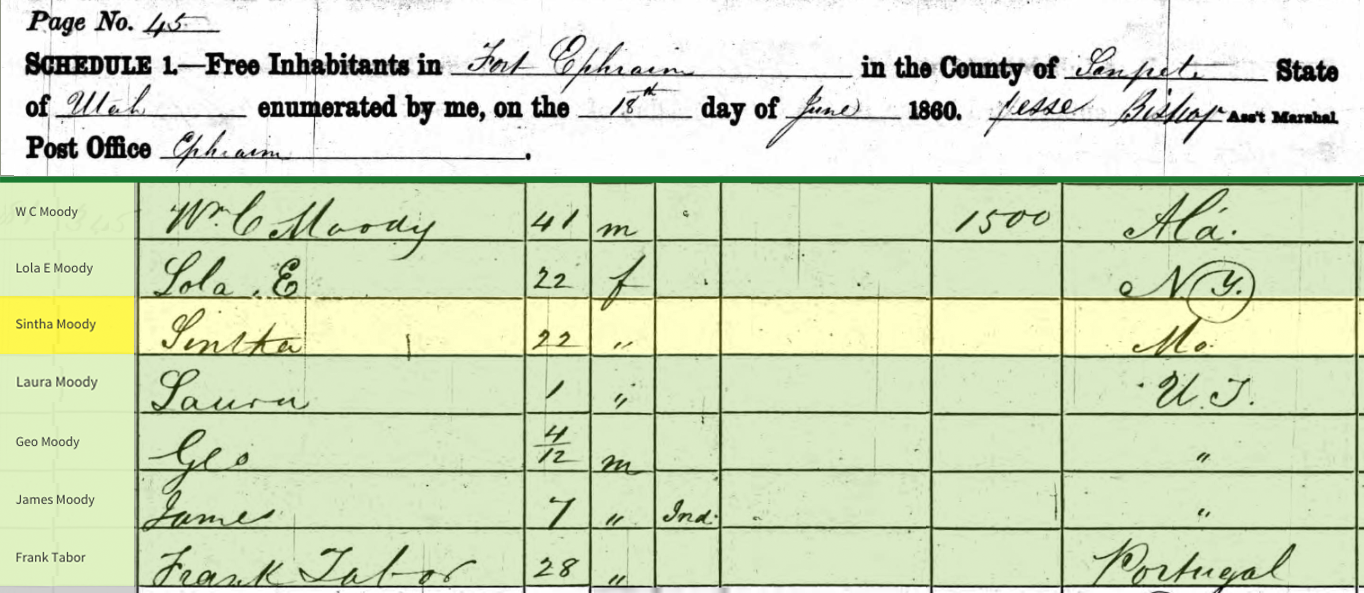 Page No. 45
SCHEDULE 1.—Free Inhabitants in Fort Ephraim in the County of Sanpete State
of Utah enumerated by me, on the 18th day of June 1860. Jesse Bishop Ass't Marshal
Post Office Ephraim.
W C Moody Wm C Moody 41 m 1500 Ala.
Lola E Moody Lola . E 22 f N. Y.
Sintha Moody Sintha 22 " Mo.
Laura Moody Laura 1 " U. T.
Geo Moody Geo 4/12 m "
James Moody James 7 " Ind. "
Frank Tabor Frank Tabor 28 " Portugal